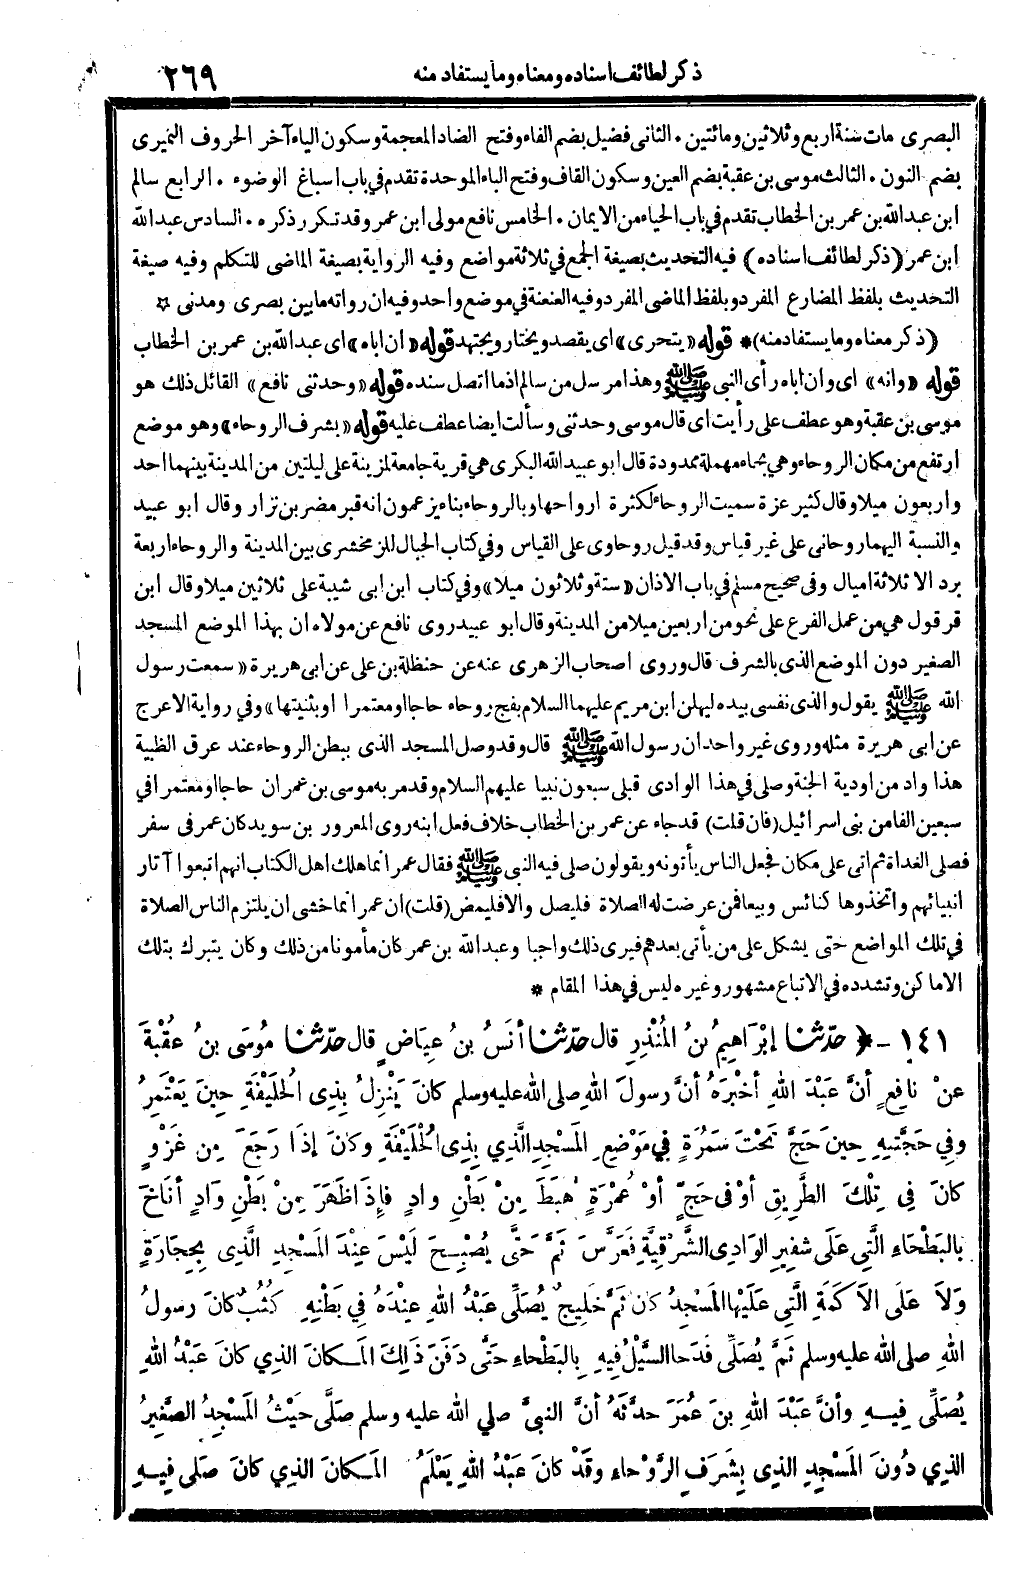 ذكر لطائف اسناده ومعناه وما يستفاد منه ٢٦٩
البصرى مات سنة اربع وثلاثين ومائتين . الثانى فضيل بضم الفاء وفتح الضاد المعجمة وسكون الياء آخر الحروف النميرى
بضم النون . الثالث موسى بن عقبة بضم العين وسكون القاف وفتح الباء الموحدة تقدم في باب اسباغ الوضوء . الرابع سالم
ابن عبدالله بن عمر بن الخطاب تقدم في باب الحياء من الايمان . الخامس نافع مولى ابن عمر وقد تكرر ذكره . السادس عبدالله
ابن عمر (ذكر لطائف اسناده) فيه التحديث بصيغة الجمع في ثلاثة مواضع وفيه الرواية بصيغة الماضى للتكلم وفيه صيغة
التحديث بلفظ المضارع المفرد وبلفظ الماضى المفرد وفيه العنعنة في موضع واحد وفيه ان رواته ما بين بصرى ومدنى *
(ذكر معناه وما يستفاد منه) * قوله «يتحرى» اى يقصد ويختار ويجتهد قوله «ان اباه» اى عبدالله بن عمر بن الخطاب
قوله «وانه» اى وان اباه رأى النبى ﷺ وهذا مرسل من سالم اذ ما اتصل سنده قوله «وحدثنى نافع» القائل ذلك هو
موسى بن عقبة وهو عطف على رأيت اى قال موسى وحدثنى وسألت ايضا عطف عليه قوله «بشرف الروحاء» وهو موضع
ارتفع من مكان الروحاء وهي بحاء مهملة ممدودة قال ابو عبيد الله البكرى هي قرية جامعة لمزينة على ليلتين من المدينة بينهما احد
واربعون ميلا وقال كثير عزة سميت الروحاء لكثرة ارواحها وبالروحاء بناء يزعمون انه قبر مضر بن نزار وقال ابو عبيد
والنسبة اليها روحانى على غير قياس وقد قيل روحاوى على القياس وفي كتاب الجبال للزمخشرى بين المدينة والروحاء اربعة
برد الا ثلاثة اميال وفى صحيح مسلم في باب الاذان «ستة وثلاثون ميلا» وفي كتاب ابن ابى شيبة على ثلاثين ميلا وقال ابن
قرقول هي من عمل الفرع على نحو من اربعين ميلا من المدينة وقال ابو عبيد روى نافع عن مولاه ان بهذا الموضع المسجد
الصغير دون الموضع الذى بالشرف قال وروى اصحاب الزهرى عنه عن حنظلة بن على عن ابى هريرة «سمعت رسول
الله ﷺ يقول والذى نفسى بيده ليهلن ابن مريم عليهما السلام بفج روحاء حاجا او معتمرا او يثنيتها» وفي رواية الاعرج
عن ابى هريرة مثله وروى غير واحد ان رسول الله ﷺ قال وقد وصل المسجد الذى ببطن الروحاء عند عرق الظبية
هذا واد من اودية الجنة وصلى في هذا الوادى قبلى سبعون نبيا عليهم السلام وقد مر به موسى بن عمران حاجا او معتمرا في
سبعين الفا من بنى اسرائيل (فان قلت) قد جاء عن عمر بن الخطاب خلاف فعل ابنه روى المعرور بن سويد كان عمر فى سفر
فصلى الغداة ثم اتى على مكان فجعل الناس يأتونه ويقولون صلى فيه النبى ﷺ فقال عمر انما هلك اهل الكتاب انهم اتبعوا آثار
انبيائهم واتخذوها كنائس وبيعا فمن عرضت له الصلاة فليصل والا فليمض (قلت) ان عمر انما خشى ان يلتزم الناس الصلاة
في تلك المواضع حتى يشكل على من يأتى بعدهم فيرى ذلك واجبا وعبدالله بن عمر كان مأمونا من ذلك وكان يتبرك بتلك
الاماكن وتشدده في الاتباع مشهور وغيره ليس في هذا المقام *
١٤١ - * حدثنا إِبْرَاهِيمُ بنُ المُنْذِرِ قال حدثنا أنَسُ بنُ عِيَاضٍ قال حدثنا مُوسَى بنُ عُقْبَةَ
عنْ نافِعٍ أنَّ عَبْدَ اللهِ أخْبَرَهُ أنَّ رسولَ اللهِ صلى الله عليه وسلم كانَ يَنْزِلُ بِذِى الحُلَيْفَةِ حِينَ يَعْتَمِرُ
وفِي حَجَّتِهِ حِينَ حَجَّ تَحْتَ سَمُرَةٍ فِي مَوْضِعِ المَسْجِدِ الَّذِي بِذِى الحُلَيْفَةِ وكانَ إذَا رَجَعَ مِن غَزْوٍ
كانَ فِي تِلْكَ الطَّرِيقِ أوْ فى حَجّ أوْ عُمْرَةٍ هَبَطَ مِنْ بَطْنِ وادٍ فإِذَا ظَهَرَ مِنْ بَطْنِ وَادٍ أناخَ
بالبَطْحَاءِ الَّتِي عَلَى شَفِيرِ الوَادِى الشَّرْقِيَّةِ فَعَرَّسَ ثَمَّ حَتَّى يُصْبِحَ لَيْسَ عِنْدَ المَسْجِدِ الَّذِى بِحِجَارَةٍ
وَلاَ عَلَى الأَكَمَةِ الَّتِي عَلَيْها المَسْجِدُ كان ثَمَّ خَلِيجٌ يُصَلِّي عَبْدُ اللهِ عِنْدَهُ فِي بَطْنِهِ كُثُبٌ كانَ رسولُ
اللهِ صلى الله عليه وسلم ثَمَّ يُصَلِّى فَدَحا السَّيْلُ فِيهِ بِالبَطْحاءِ حَتَّى دَفَنَ ذَلِكَ المَكانَ الذِي كانَ عَبْدُ اللهِ
يُصَلِّى فِيهِ وأنَّ عَبْدَ اللهِ بنَ عُمَرَ حدَّثَهُ أنَّ النبيَّ صلي الله عليه وسلم صَلَّى حَيْثُ المَسْجِدُ الصَّغِيرُ
الذِي دُونَ المَسْجِدِ الذِى بِشَرَفِ الرَّوْحاءِ وقَدْ كانَ عَبْدُ اللهِ يَعْلَمُ المَكانَ الذِي كانَ صَلَى فِيهِ